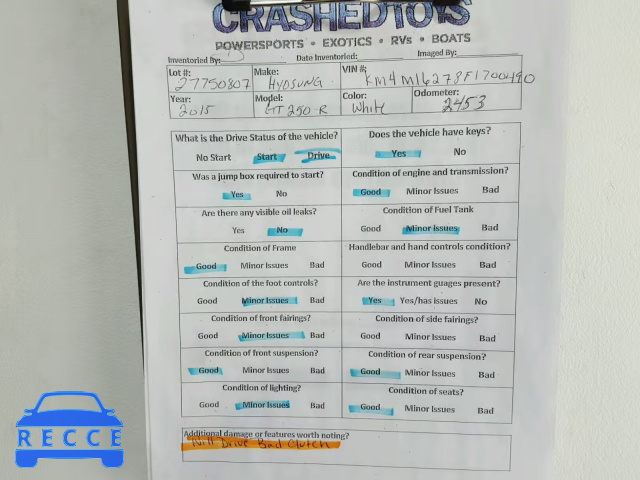 CRASHEDTOYS
POWERSPORTS • EXOTICS • RVs • BOATS
Inventoried By: Date Inventoried: Imaged By:
Lot #: Make: VIN #:
27750807 HYOSUNG KM4MJ6278F1700490
Year: Model: Color: Odometer:
2015 GT 250 R White 2453
What is the Drive Status of the vehicle? Does the vehicle have keys?
No Start Start Drive Yes No
Was a jump box required to start? Condition of engine and transmission?
Yes No Good Minor Issues Bad
Are there any visible oil leaks? Condition of Fuel Tank
Yes No Good Minor Issues Bad
Condition of Frame Handlebar and hand controls condition?
Good Minor Issues Bad Good Minor Issues Bad
Condition of the foot controls? Are the instrument guages present?
Good Minor Issues Bad Yes Yes/has issues No
Condition of front fairings? Condition of side fairings?
Good Minor Issues Bad Good Minor Issues Bad
Condition of front suspension? Condition of rear suspension?
Good Minor Issues Bad Good Minor Issues Bad
Condition of lighting? Condition of seats?
Good Minor Issues Bad Good Minor Issues Bad
Additional damage or features worth noting?
Will Drive Bad Clutch
RECCE